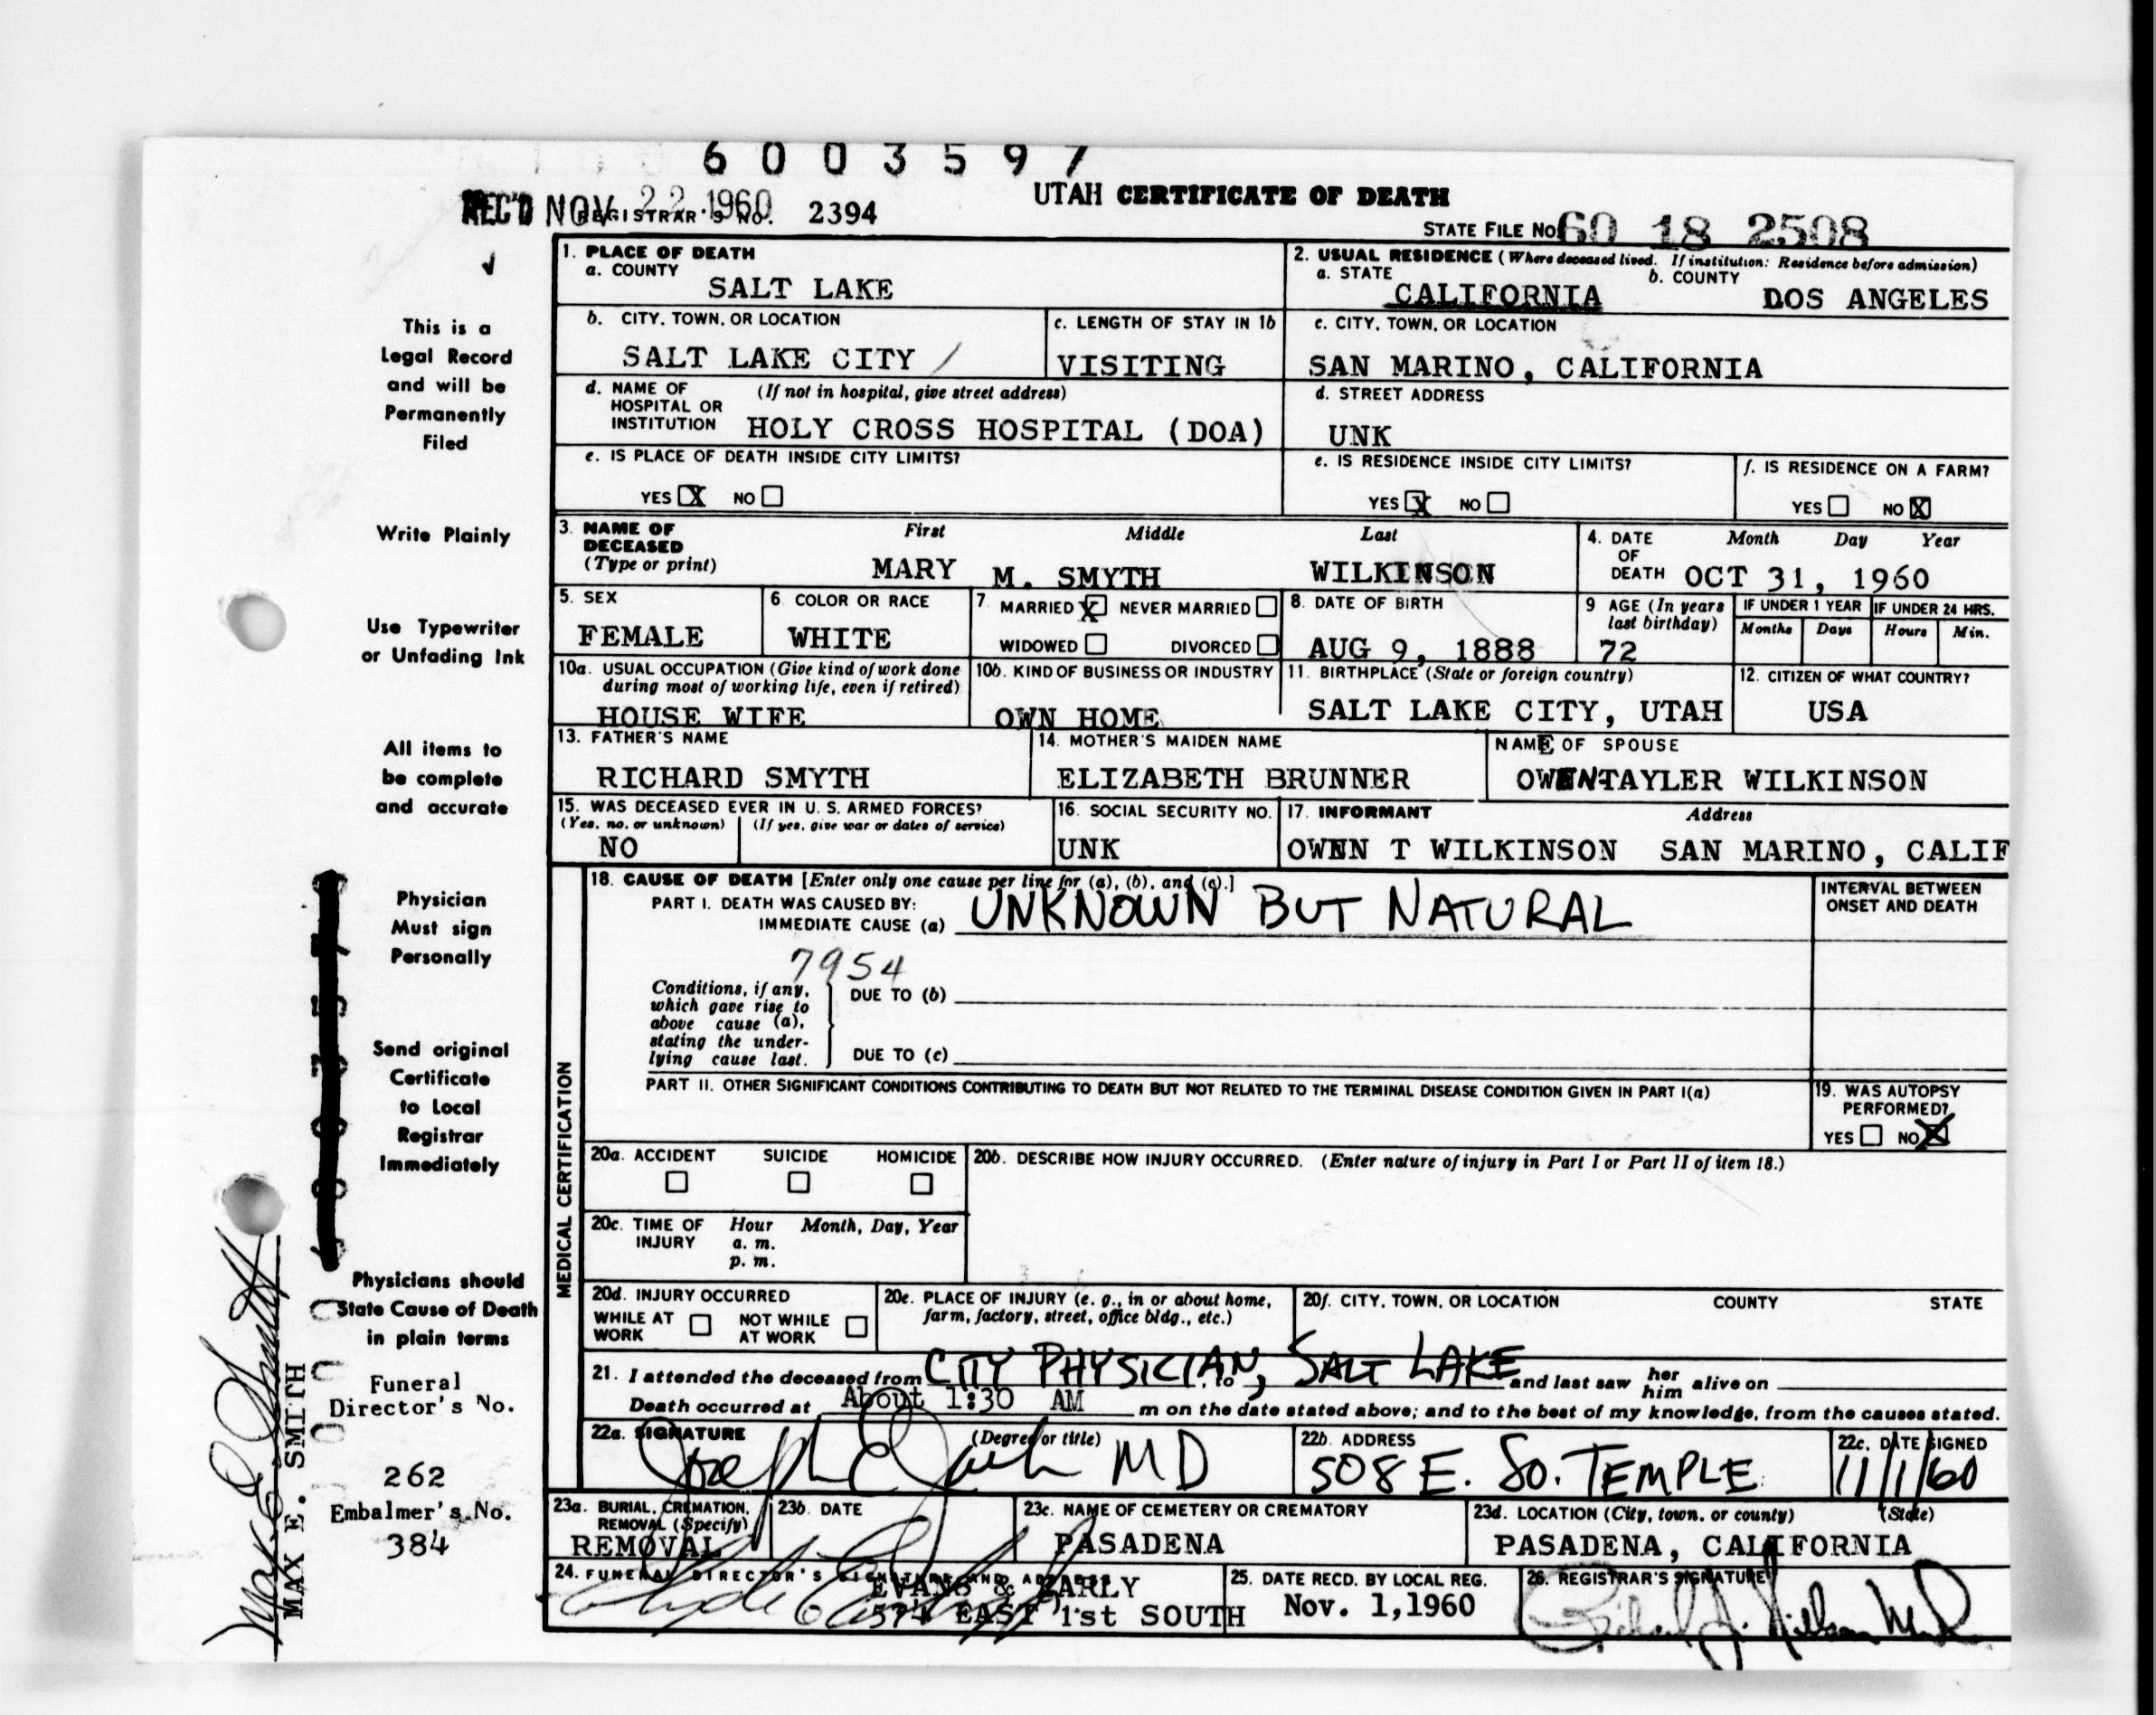 6003597
REC'D NOV 22 1960 REGISTRAR'S NO. 2394
UTAH CERTIFICATE OF DEATH
STATE FILE No. 60 18 2508
This is a
Legal Record
and will be
Permanently
Filed
Write Plainly
Use Typewriter
or Unfading Ink
All items to
be complete
and accurate
Physician
Must sign
Personally
Send original
Certificate
to Local
Registrar
Immediately
Physicians should
State Cause of Death
in plain terms
Funeral
Director's No.
262
Embalmer's No.
384
Max E. Smith
MAX E. SMITH
1. PLACE OF DEATH
a. COUNTY
SALT LAKE
2. USUAL RESIDENCE (Where deceased lived. If institution: Residence before admission)
a. STATE CALIFORNIA b. COUNTY DOS ANGELES
b. CITY, TOWN, OR LOCATION
SALT LAKE CITY
c. LENGTH OF STAY IN 1b
VISITING
c. CITY, TOWN, OR LOCATION
SAN MARINO, CALIFORNIA
d. NAME OF (If not in hospital, give street address)
HOSPITAL OR
INSTITUTION HOLY CROSS HOSPITAL (DOA)
d. STREET ADDRESS
UNK
e. IS PLACE OF DEATH INSIDE CITY LIMITS?
YES X NO
e. IS RESIDENCE INSIDE CITY LIMITS?
YES X NO
f. IS RESIDENCE ON A FARM?
YES NO X
3. NAME OF First Middle Last
DECEASED
(Type or print) MARY M. SMYTH WILKINSON
4. DATE Month Day Year
OF
DEATH OCT 31, 1960
5. SEX
FEMALE
6 COLOR OR RACE
WHITE
7. MARRIED X NEVER MARRIED
WIDOWED DIVORCED
8. DATE OF BIRTH
AUG 9, 1888
9 AGE (In years
last birthday)
72
IF UNDER 1 YEAR
Months Days
IF UNDER 24 HRS.
Hours Min.
10a. USUAL OCCUPATION (Give kind of work done
during most of working life, even if retired)
HOUSE WIFE
10b. KIND OF BUSINESS OR INDUSTRY
OWN HOME
11. BIRTHPLACE (State or foreign country)
SALT LAKE CITY, UTAH
12. CITIZEN OF WHAT COUNTRY?
USA
13. FATHER'S NAME
RICHARD SMYTH
14. MOTHER'S MAIDEN NAME
ELIZABETH BRUNNER
NAME OF SPOUSE
OWEN TAYLER WILKINSON
15. WAS DECEASED EVER IN U. S. ARMED FORCES?
(Yes, no, or unknown) (If yes, give war or dates of service)
NO
16. SOCIAL SECURITY NO.
UNK
17. INFORMANT Address
OWEN T WILKINSON SAN MARINO, CALIF
MEDICAL CERTIFICATION
18. CAUSE OF DEATH [Enter only one cause per line for (a), (b), and (c).]
PART I. DEATH WAS CAUSED BY:
IMMEDIATE CAUSE (a) UNKNOWN BUT NATURAL
INTERVAL BETWEEN
ONSET AND DEATH
7954
Conditions, if any,
which gave rise to
above cause (a),
stating the under-
lying cause last.
DUE TO (b)
DUE TO (c)
PART II. OTHER SIGNIFICANT CONDITIONS CONTRIBUTING TO DEATH BUT NOT RELATED TO THE TERMINAL DISEASE CONDITION GIVEN IN PART I(a)
19. WAS AUTOPSY
PERFORMED?
YES NO X
20a. ACCIDENT SUICIDE HOMICIDE
20b. DESCRIBE HOW INJURY OCCURRED. (Enter nature of injury in Part I or Part II of item 18.)
20c. TIME OF Hour Month, Day, Year
INJURY a. m.
p. m.
20d. INJURY OCCURRED
WHILE AT NOT WHILE
WORK AT WORK
20e. PLACE OF INJURY (e. g., in or about home,
farm, factory, street, office bldg., etc.)
20f. CITY, TOWN, OR LOCATION COUNTY STATE
21. I attended the deceased from CITY PHYSICIAN, to SALT LAKE and last saw her him alive on
Death occurred at About 1:30 AM m on the date stated above; and to the best of my knowledge, from the causes stated.
22a. SIGNATURE (Degree or title)
Joseph MD
22b. ADDRESS
508 E. SO. TEMPLE
22c. DATE SIGNED
11/1/60
23a. BURIAL, CREMATION,
REMOVAL (Specify)
REMOVAL
23b. DATE
23c. NAME OF CEMETERY OR CREMATORY
PASADENA
23d. LOCATION (City, town, or county) (State)
PASADENA, CALIFORNIA
24. FUNERAL DIRECTOR'S SIGNATURE AND ADDRESS
EVANS & EARLY
574 EAST 1st SOUTH
25. DATE RECD. BY LOCAL REG.
Nov. 1, 1960
26. REGISTRAR'S SIGNATURE